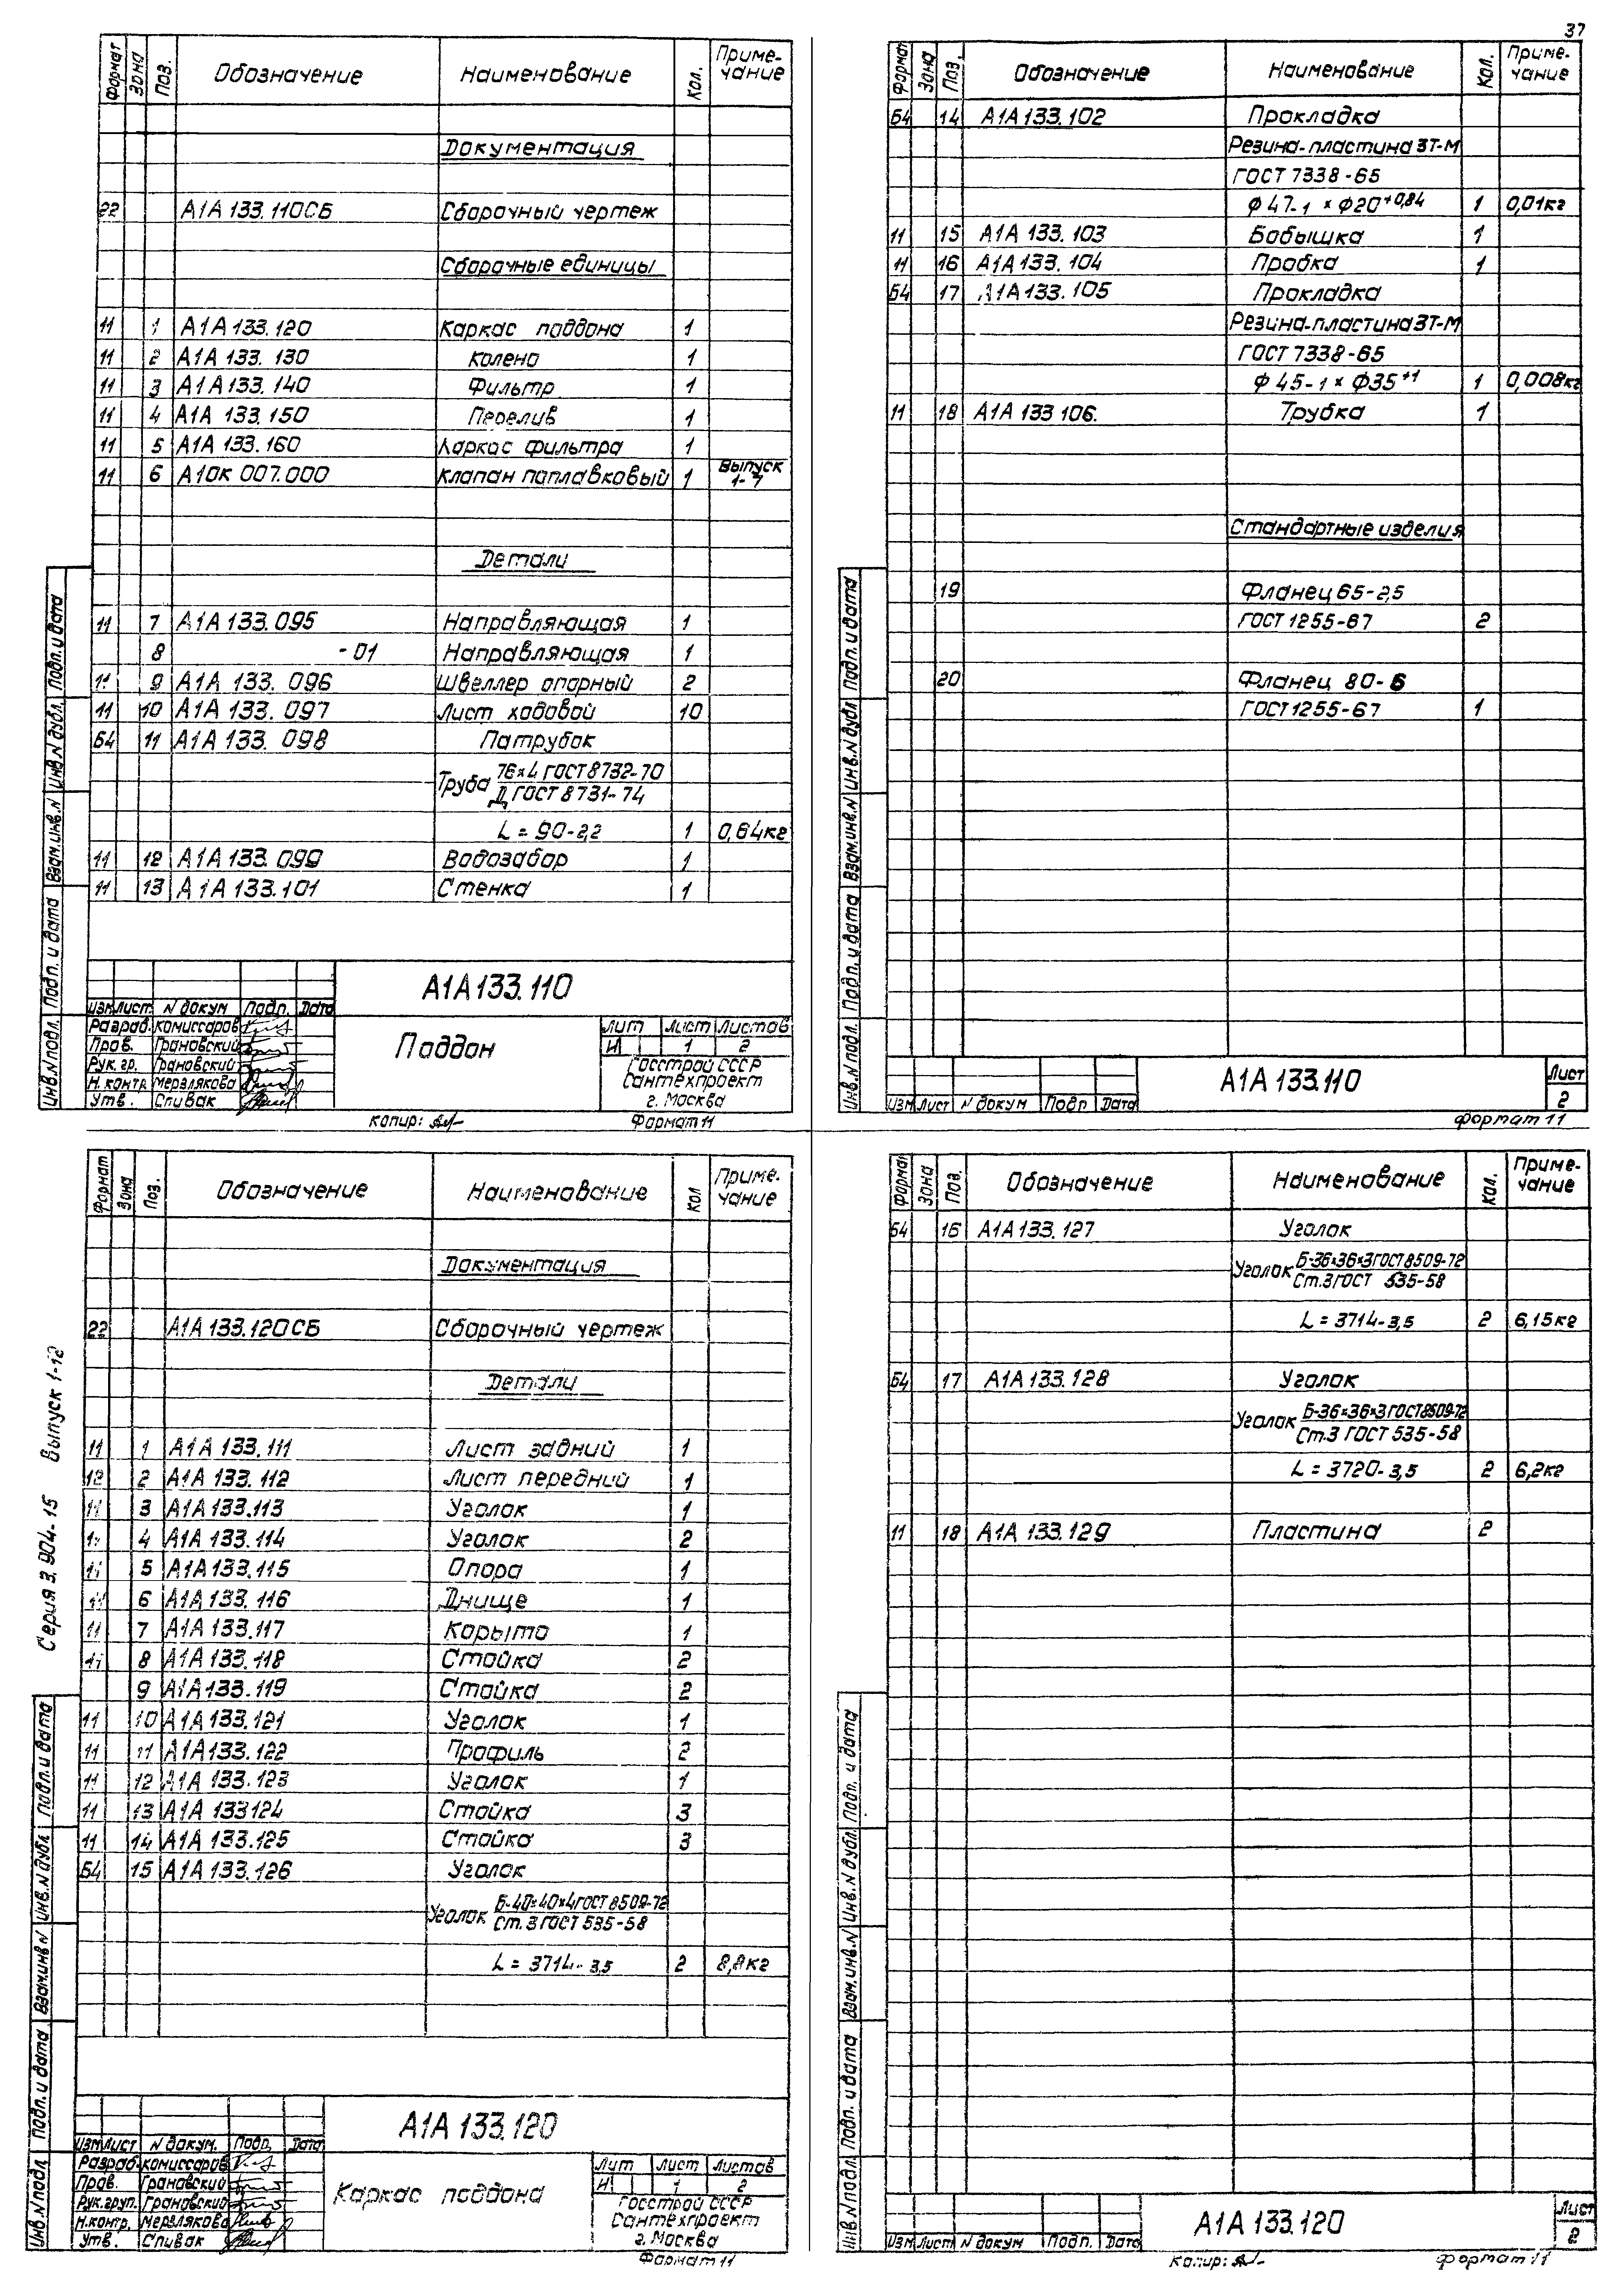 37
Формат Зона Поз. Обозначение Наименование Кол. Приме-чание
Документация
22 А1А 133.110СБ Сборочный чертеж
Сборочные единицы
11 1 А1А 133.120 Каркас поддона 1
11 2 А1А 133.130 Колено 1
11 3 А1А 133.140 Фильтр 1
11 4 А1А 133.150 Перелив 1
11 5 А1А 133.160 Каркас фильтра 1
11 6 А10К 007.000 Клапан поплавковый 1 Выпуск 1-7
Детали
11 7 А1А 133.095 Направляющая 1
8 -01 Направляющая 1
11 9 А1А 133.096 Швеллер опорный 2
11 10 А1А 133.097 Лист ходовой 10
Б4 11 А1А 133.098 Патрубок
Труба 76×4 ГОСТ 8732-70
Д ГОСТ 8731-74
L = 90-2,2 1 0,64кг
11 12 А1А 133.099 Водозабор 1
11 13 А1А 133.101 Стенка 1
Инв.N подл. Подп. и дата Взам.инв.N Инв.N дубл. Подп. и дата
А1А133.110
Изм Лист N докум Подп. Дата
Разраб. Комиссаров
Пров. Грановский
Рук. гр. Грановский
Н. контр Мерзлякова
Утв. Спивак
Поддон
Лит Лист Листов
И 1 2
Госстрой СССР
Сантехпроект
г. Москва
Копир: Формат 11
Формат Зона Поз. Обозначение Наименование Кол. Приме-чание
Б4 14 А1А 133.102 Прокладка
Резина-пластина 3Т-М
ГОСТ 7338-65
ϕ 47-1 × ϕ20+0,84 1 0,01кг
11 15 А1А 133.103 Бобышка 1
11 16 А1А 133.104 Пробка 1
Б4 17 А1А 133.105 Прокладка
Резина-пластина 3Т-М
ГОСТ 7338-65
ϕ 45-1 × ϕ35+1 1 0,008кг
11 18 А1А 133 106. Трубка 1
Стандартные изделия
19 Фланец 65-2,5
ГОСТ 1255-67 2
20 Фланец 80-6
ГОСТ 1255-67 1
Инв.N подл. Подп. и дата Взам.инв.N Инв.N дубл Подп. и дата
Изм Лист N докум Подп Дата
А1А 133.110
Лист
2
Формат 11
Формат Зона Поз. Обозначение Наименование Кол Приме-чание
Документация
22 А1А 133.120СБ Сборочный чертеж
Детали
11 1 А1А 133.111 Лист задний 1
12 2 А1А 133.112 Лист передний 1
11 3 А1А 133.113 Уголок 1
11 4 А1А 133.114 Уголок 2
11 5 А1А 133.115 Опора 1
11 6 А1А 133.116 Днище 1
11 7 А1А 133.117 Корыто 1
11 8 А1А 133.118 Стойка 2
9 А1А 133.119 Стойка 2
11 10 А1А 133.121 Уголок 1
11 11 А1А 133.122 Профиль 2
11 12 А1А 133.123 Уголок 1
11 13 А1А 133124 Стойка 3
11 14 А1А 133.125 Стойка 3
Б4 15 А1А 133.126 Уголок
Уголок Б-40×40×4 ГОСТ 8509-72
Ст. 3 ГОСТ 535-58
L = 3714-3,5 2 8,8кг
Серия 3.904-15 Выпуск 1-12
Инв.N подл. Подп. и дата Взам.инв N Инв.N дубл. Подп. и дата
А1А 133.120
Изм Лист N докум. Подп. Дата
Разраб. Комиссаров
Пров. Грановский
Рук.груп. Грановский
Н.контр. Мерзлякова
Утв. Спивак
Каркас поддона
Лит Лист Листов
И 1 2
Госстрой СССР
Сантехпроект
г. Москва
Формат 11
Формат Зона Поз. Обозначение Наименование Кол. Приме-чание
Б4 16 А1А 133.127 Уголок
Уголок Б-36×36×3 ГОСТ 8509-72
Ст. 3 ГОСТ 535-58
L = 3714-3,5 2 6,15кг
Б4 17 А1А 133.128 Уголок
Уголок Б-36×36×3 ГОСТ 8509-72
Ст.3 ГОСТ 535-58
L = 3720-3,5 2 6,2кг
11 18 А1А 133.129 Пластина 2
Инв.N подл. Подп. и дата Взам.инв.N Инв.N дубл. Подп. и дата
Изм Лист N докум Подп. Дата
А1А 133.120
Лист
2
Копир: Формат 11